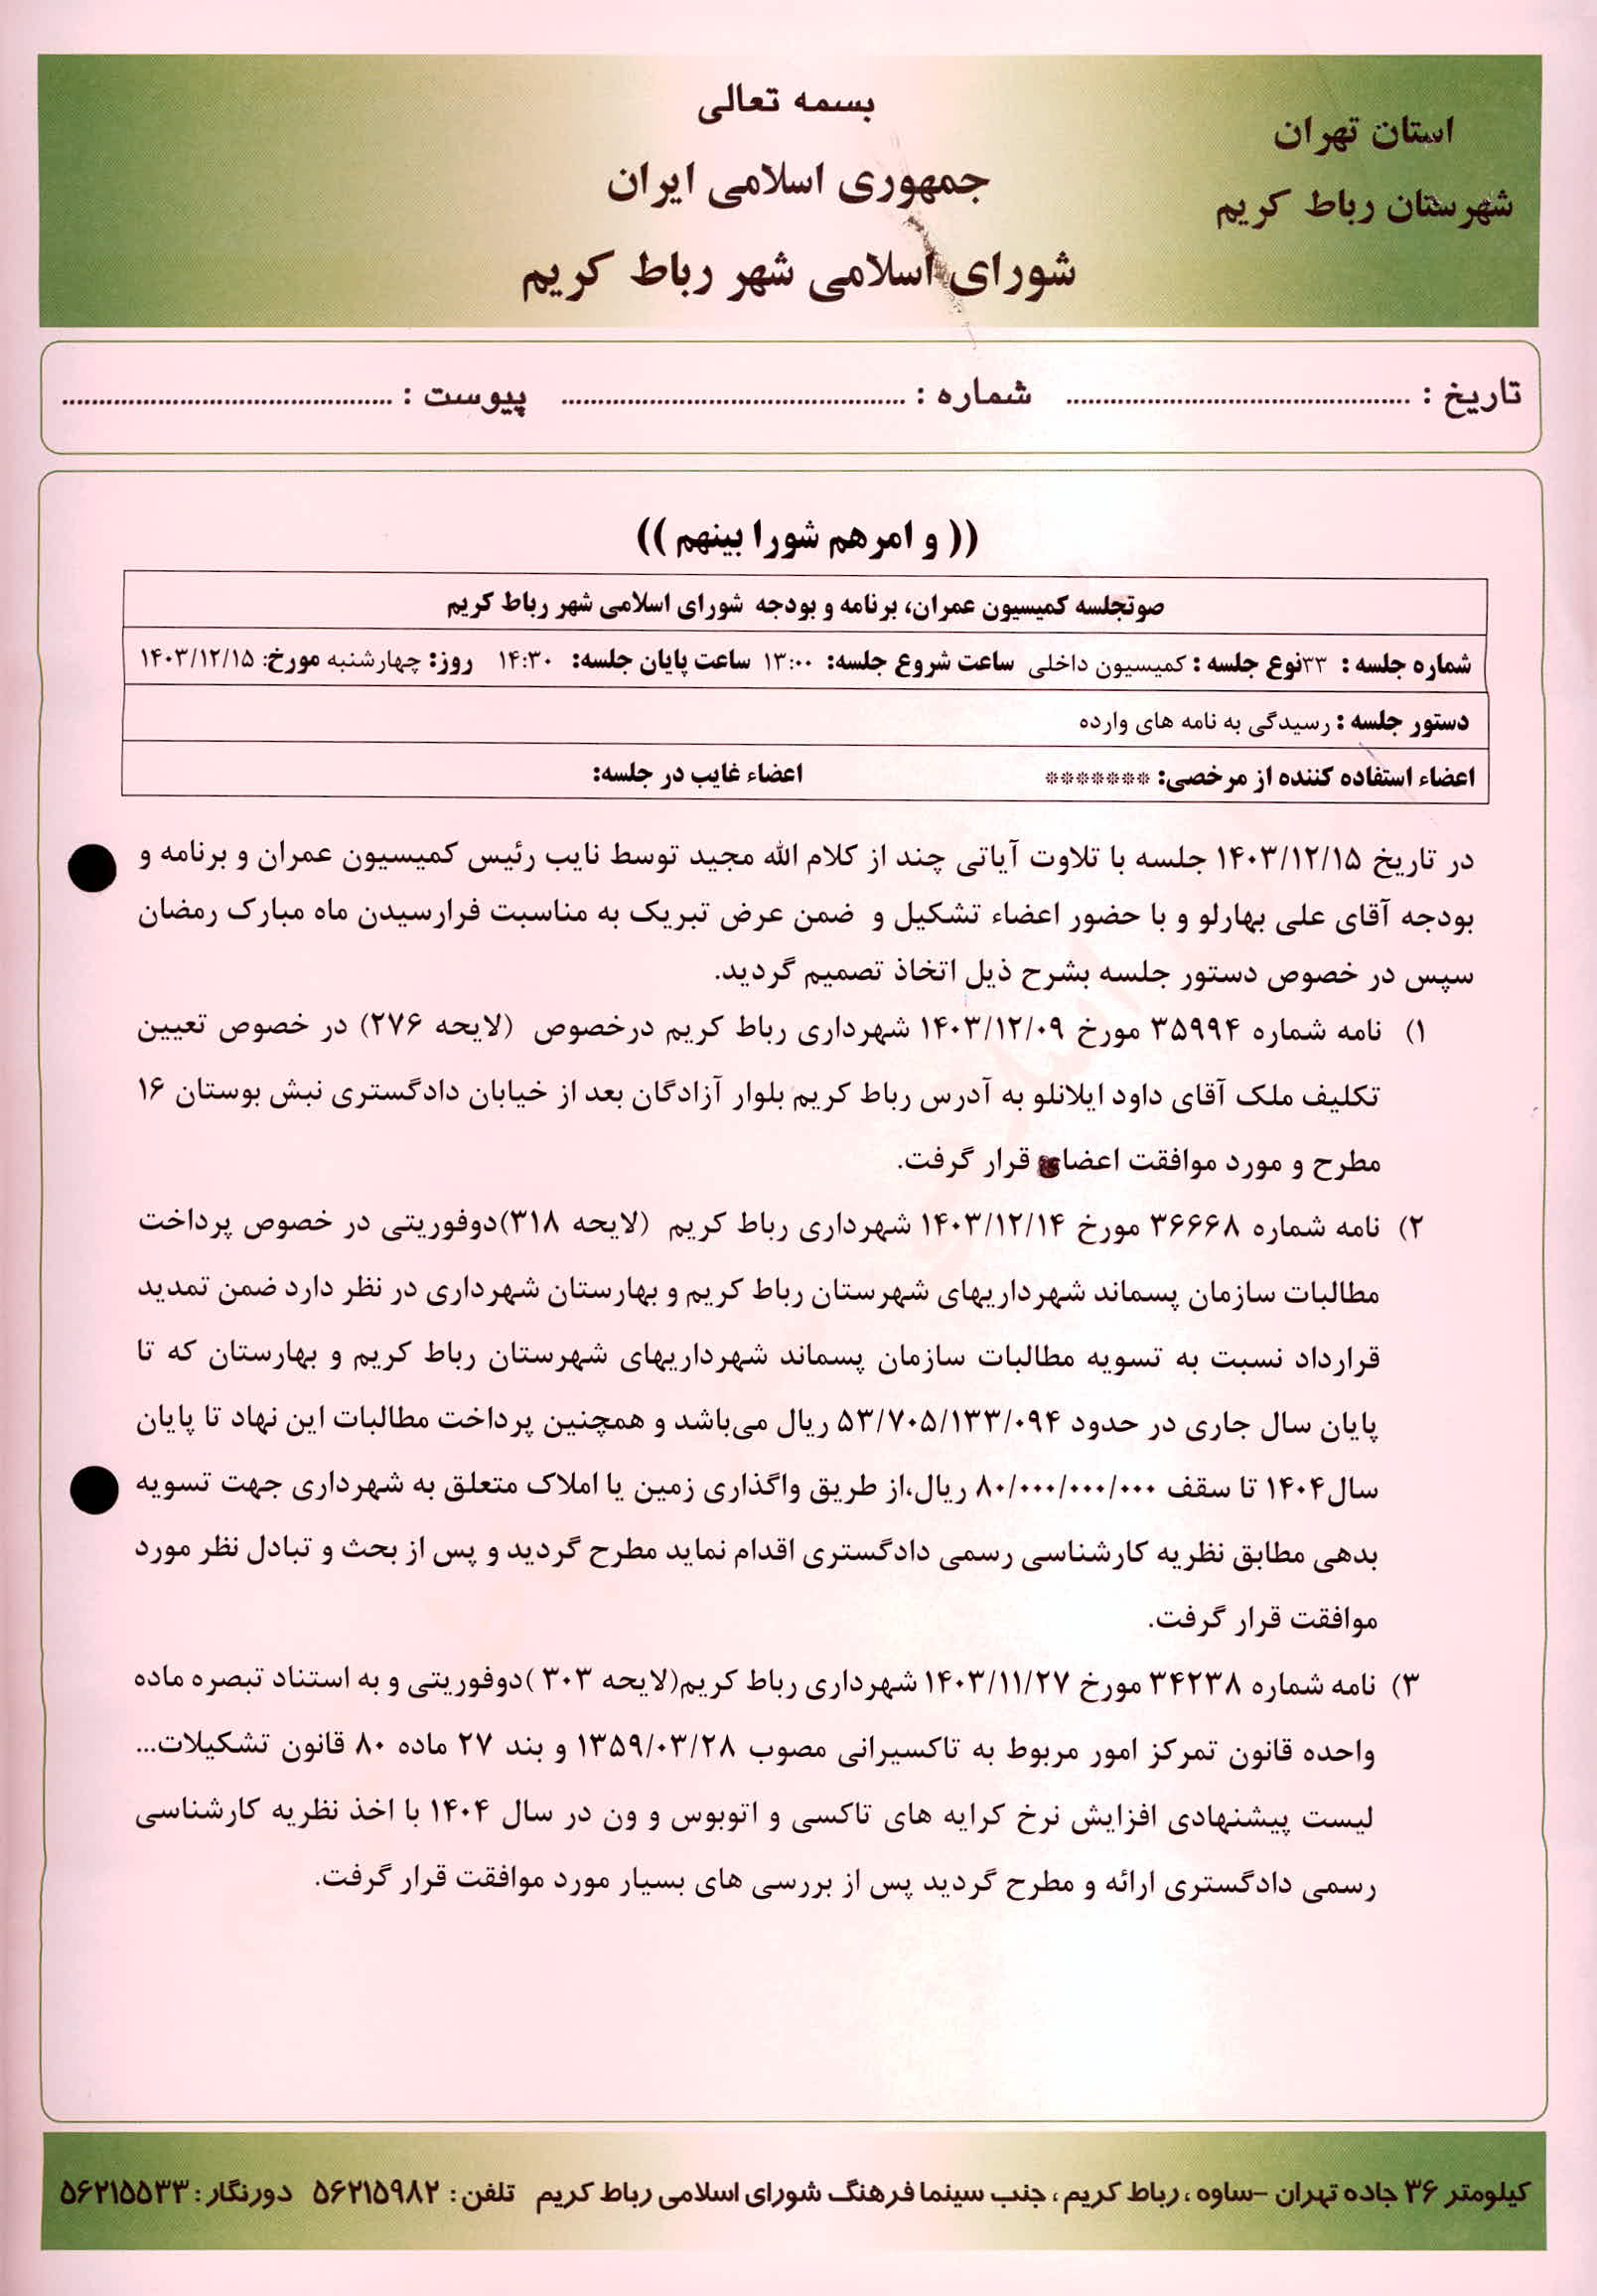 بسمه تعالی
استان تهران
جمهوری اسلامی ایران
شهرستان رباط کریم
شورای اسلامی شهر رباط کریم
تاریخ : ........................................ شماره : ........................................ پیوست : ........................................
(( و امرهم شورا بینهم ))
صوتجلسه کمیسیون عمران، برنامه و بودجه شورای اسلامی شهر رباط کریم
شماره جلسه : ۳۳نوع جلسه : کمیسیون داخلی ساعت شروع جلسه: ۱۳:۰۰ ساعت پایان جلسه: ۱۴:۳۰ روز: چهارشنبه مورخ: ۱۴۰۳/۱۲/۱۵
دستور جلسه : رسیدگی به نامه های وارده
اعضاء استفاده کننده از مرخصی: ******* اعضاء غایب در جلسه:
در تاریخ ۱۴۰۳/۱۲/۱۵ جلسه با تلاوت آیاتی چند از کلام الله مجید توسط نایب رئیس کمیسیون عمران و برنامه و
بودجه آقای علی بهارلو و با حضور اعضاء تشکیل و ضمن عرض تبریک به مناسبت فرارسیدن ماه مبارک رمضان
سپس در خصوص دستور جلسه بشرح ذیل اتخاذ تصمیم گردید.
۱) نامه شماره ۳۵۹۹۴ مورخ ۱۴۰۳/۱۲/۰۹ شهرداری رباط کریم درخصوص (لایحه ۲۷۶) در خصوص تعیین
تکلیف ملک آقای داود ایلانلو به آدرس رباط کریم بلوار آزادگان بعد از خیابان دادگستری نبش بوستان ۱۶
مطرح و مورد موافقت اعضاء قرار گرفت.
۲) نامه شماره ۳۶۶۶۸ مورخ ۱۴۰۳/۱۲/۱۴ شهرداری رباط کریم (لایحه ۳۱۸)دوفوریتی در خصوص پرداخت
مطالبات سازمان پسماند شهرداریهای شهرستان رباط کریم و بهارستان شهرداری در نظر دارد ضمن تمدید
قرارداد نسبت به تسویه مطالبات سازمان پسماند شهرداریهای شهرستان رباط کریم و بهارستان که تا
پایان سال جاری در حدود ۵۳/۷۰۵/۱۳۳/۰۹۴ ریال می‌باشد و همچنین پرداخت مطالبات این نهاد تا پایان
سال۱۴۰۴ تا سقف ۸۰/۰۰۰/۰۰۰/۰۰۰ ریال،از طریق واگذاری زمین یا املاک متعلق به شهرداری جهت تسویه
بدهی مطابق نظریه کارشناسی رسمی دادگستری اقدام نماید مطرح گردید و پس از بحث و تبادل نظر مورد
موافقت قرار گرفت.
۳) نامه شماره ۳۴۲۳۸ مورخ ۱۴۰۳/۱۱/۲۷ شهرداری رباط کریم(لایحه ۳۰۳ )دوفوریتی و به استناد تبصره ماده
واحده قانون تمرکز امور مربوط به تاکسیرانی مصوب ۱۳۵۹/۰۳/۲۸ و بند ۲۷ ماده ۸۰ قانون تشکیلات...
لیست پیشنهادی افزایش نرخ کرایه های تاکسی و اتوبوس و ون در سال ۱۴۰۴ با اخذ نظریه کارشناسی
رسمی دادگستری ارائه و مطرح گردید پس از بررسی های بسیار مورد موافقت قرار گرفت.
کیلومتر ۳۶ جاده تهران -ساوه ، رباط کریم ، جنب سینما فرهنگ شورای اسلامی رباط کریم تلفن: ۵۶۲۱۵۹۸۲ دورنگار: ۵۶۲۱۵۵۳۳